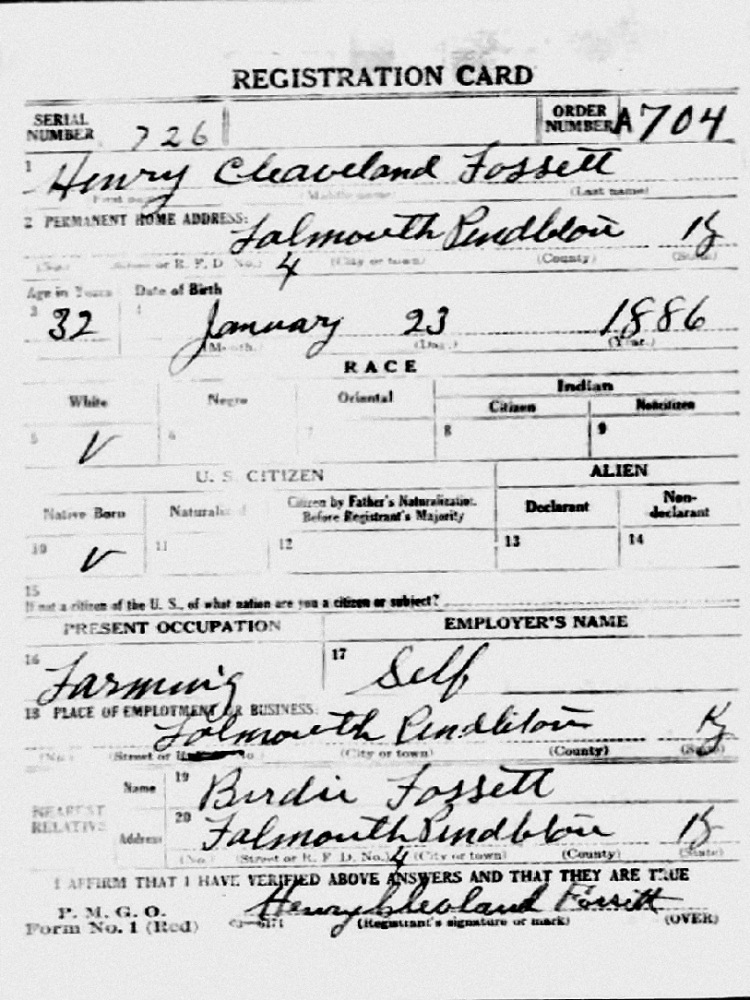 REGISTRATION CARD
SERIAL NUMBER 726 ORDER NUMBER A704
1 Henry Cleaveland Fossett
First name Middle name (Last name)
2 PERMANENT HOME ADDRESS: Falmouth Pendleton Ky
(No.) Street or R. F. D. No.) 4 (City or town) (County) (State)
Age in Years Date of Birth
3 32 4 January 23 1886
(Month.) (Day.) (Year.)
RACE
White Negro Oriental Indian
Citizen Noncitizen
5 V 6 7 8 9
U. S. CITIZEN ALIEN
Native Born Naturalized Citizen by Father's Naturalization Before Registrant's Majority Declarant Non-declarant
10 V 11 12 13 14
15
If not a citizen of the U. S., of what nation are you a citizen or subject?
PRESENT OCCUPATION EMPLOYER'S NAME
16 Farming 17 Self
18 PLACE OF EMPLOYMENT OR BUSINESS:
Falmouth Pendleton Ky
(No.) (Street or No.) (City or town) (County) (State)
NEAREST RELATIVE
Name 19 Birdie Fossett
Address 20 Falmouth Pendleton Ky
(No.) (Street or R. F. D. No.) 4 (City or town) (County) (State)
I AFFIRM THAT I HAVE VERIFIED ABOVE ANSWERS AND THAT THEY ARE TRUE
P. M. G. O.
Form No. 1 (Red) Henry Cleveland Fossett
(Registrant's signature or mark) (OVER)